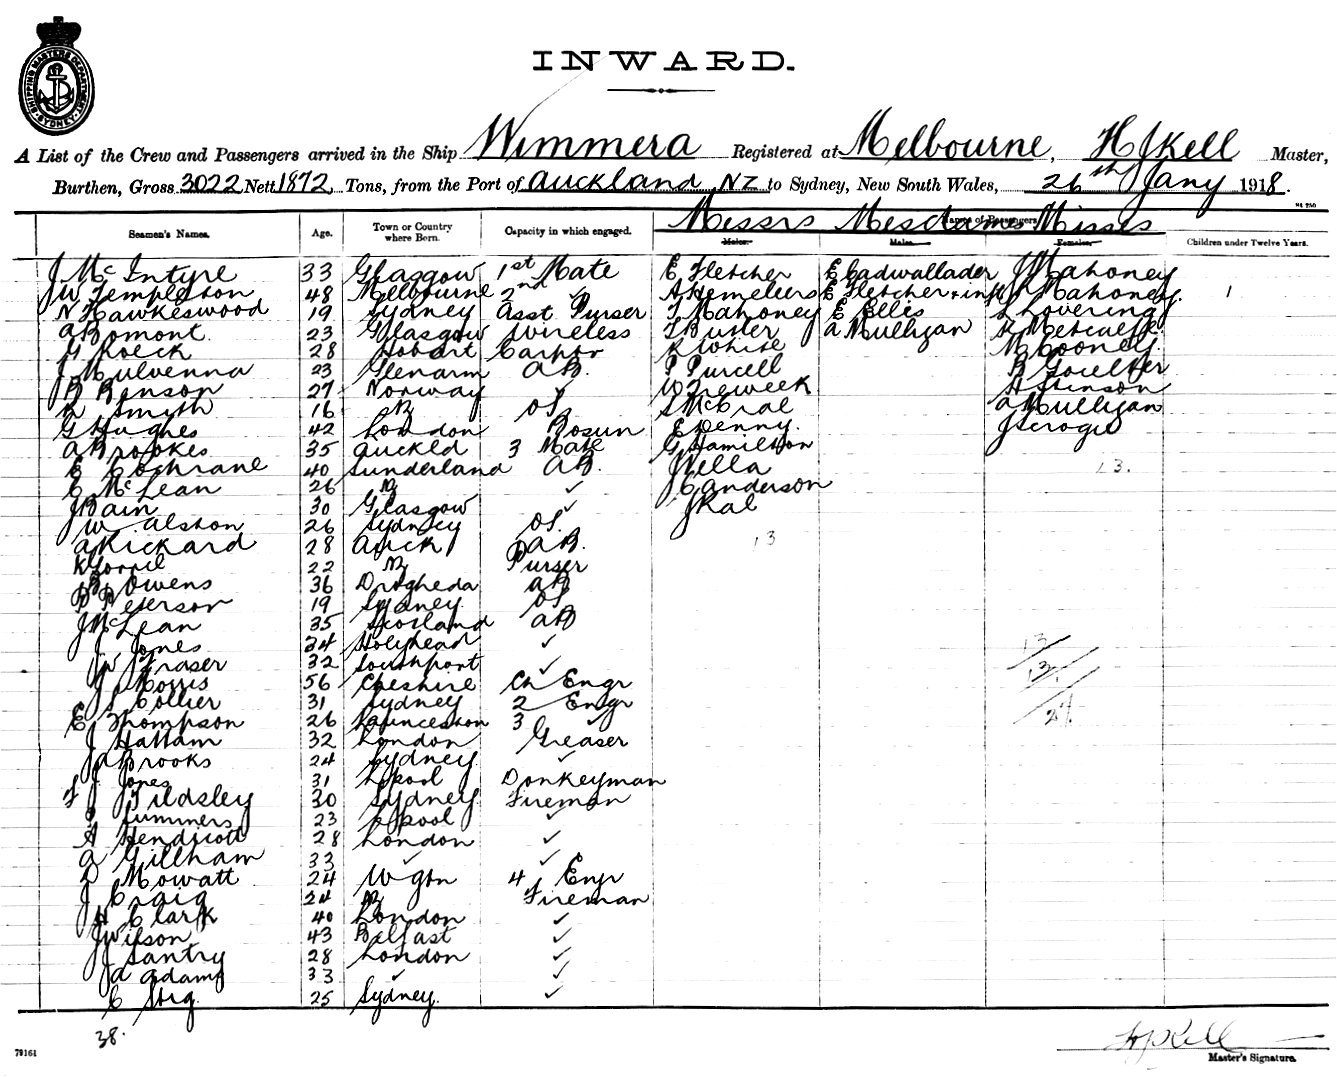 SHIPPING MASTERS DEPARTMENT SYDNEY
INWARD.
A List of the Crew and Passengers arrived in the Ship Wimmera Registered at Melbourne, H J Kell Master,
Burthen, Gross 3022 Nett 1872, Tons, from the Port of Auckland NZ to Sydney, New South Wales, 26th Jany 1918.
Messrs Mesdames Misses
Seamen's Names. Age. Town or Country where Born. Capacity in which engaged. Names of Passengers Males. Males. Females. Children under Twelve Years.
J McIntyre 33 Glasgow 1st Mate E Fletcher E Cadwallader J Mahoney
W Templeton 48 Melbourne 2nd ✓ A Hemeleers E Fletcher + inft J Mahoney. 1
N Hawkeswood 19 Sydney Asst Purser T Mahoney E Elles L Lovering
A Bomont 23 Glasgow Wireless T Butler A Mulligan K Metcalfe
H Koeck 28 Hobart Carptr R White M Cooney.
J Mulvenna 23 Glenarm AB. P Purcell
B Benson 27 Norway ✓ W Treweek A Stinson
R Smyth 16 NZ OS. S McCrae A Mulligan
G Hughes 42 London Bosun E Penny.
A Brookes 35 Auckld 3 Mate G Hamilton
E Cochrane 40 Sunderland AB. J Vella 13.
E McLean 26 NZ ✓ J C Anderson
J Bain 30 Glasgow ✓ J Rae
W Alston 26 Sydney OS.
A Rickard 28 Auck AB. 13
K Gorrie 22 NZ Purser
B Owens 36 Drogheda AB
P Peterson 19 Sydney. OS
J McLean 35 Scotland AB
J Jones 24 Holyhead ✓ 13
W Fraser 32 Southport ✓ 13.
J Morris 56 Cheshire Ch Engr
J S Collier 31 Sydney 2 Engr
E Thompson 26 Launceston 3 ✓
J Hallam 32 London Greaser
J A Brooks 24 Sydney ✓
J Jones 31 Lpool Donkeyman
F J Tildsley 30 Sydney Fireman
Summers 23 Lpool ✓
A Hendriott 28 London ✓
A Gillham 33 ✓ ✓
D Mowatt 24 Wgtn 4 Engr
J Craig 24 NZ Fireman
H Clark 40 London ✓
J Wilson 43 Belfast ✓
J Santry 28 London ✓
J A Adams 33 ✓ ✓
C 25 Sydney. ✓
38.
H J Kell
Master's Signature.
79161